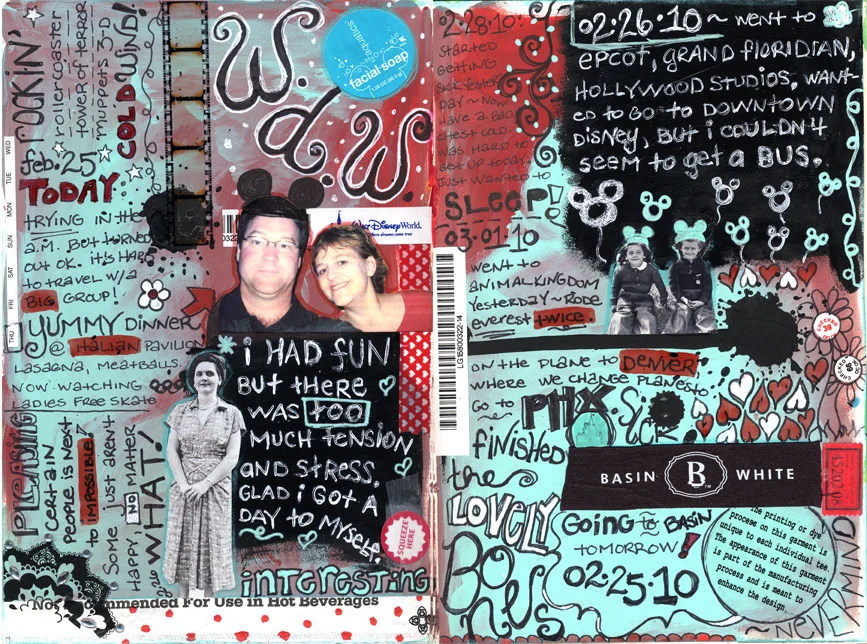 ROCKIN'
rollercoaster
TOWER of TERROR
MUPPETS 3-D
COLD WIND!
W.
d.
W
aquatics
facial soap
WED
TUE
MON
SUN
SAT
FRI
THU
feb. 25
TODAY
TRYING IN the
A.M. BUT TURNED
OUT OK. it's HARD
to travel w/a
BIG GROUP!
YUMMY DINNER
@ ITALIAN PAVILION
LASAGNA, MEATBALLS.
NOW WATCHING
LADIES FREE SKATE
WALT DISNEY World.
Where dreams come true
i HAD fUN
BUT tHERE
WAS too
MUCH tENSION
AND StRESS.
GLAD i GOt A
DAY to MYSELF.
INTERESTING
SQUEEZE
HERE
PLEASING
CERtAIN
PEOPLE iS NEXT
to IMPOSSIBLE!
Some just aren't
HAPPY NO MATTER
WHAT!
Not Recommended For Use in Hot Beverages
02·28·10:
started
getting
sick yester
day ~ now
Have a bad
chest cold.
was hard to
get up today.
Just wanted to
SLEEP!
03·01·10
went to
ANIMAL KINGDOM
Yesterday ~ Rode
everest twice.
LG15800322-14
02·26·10 ~ WENT to
EPCOT, GRAND FLORIDIAN,
HOLLYWOOD STUDIOS, WANT-
ED to GO to DOWNTOWN
DISNEY, BUT i COULDN't
SEEM to get a BUS.
ON tHE PLANE to DENVER
WHERE WE CHANGE PLANES to
GO to PHX.
SICK
finished
the
LOVELY
BONES
CHECKED
39
CHECKED
BASIN B WHITE
GOING to BASIN
TOMORROW!
02·25·10
The printing or dye
process on this garment is
unique to each individual tee.
The appearance of this garment
is part of the manufacturing
process and is meant to
enhance the design.
~ NEVERMIND